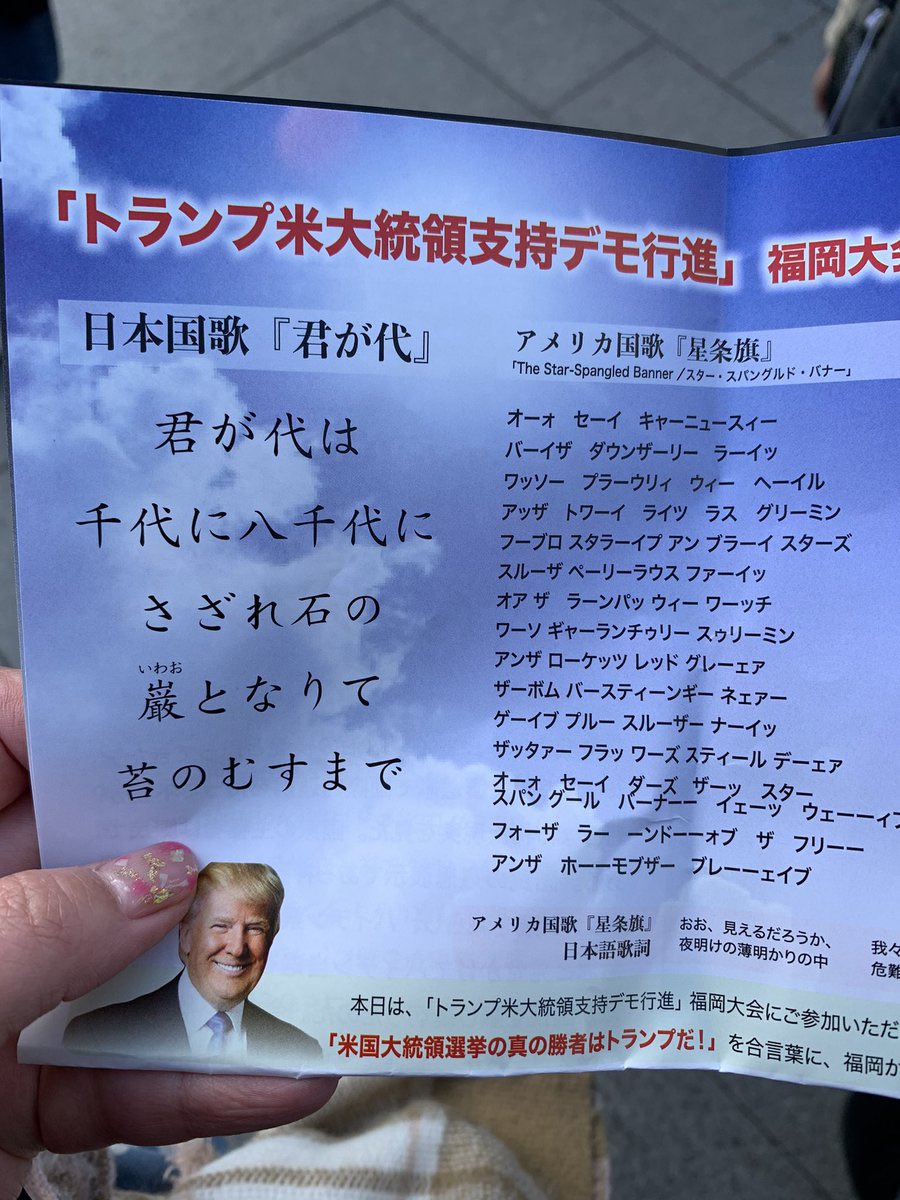 「トランプ米大統領支持デモ行進」 福岡大会
日本国歌『君が代』
君が代は
千代に八千代に
さざれ石の
いわお
巌となりて
苔のむすまで
アメリカ国歌『星条旗』
「The Star-Spangled Banner /スター・スパングルド・バナー」
オーォ セーイ キャーニュースィー
バーイザ ダウンザーリー ラーイッ
ワッソー プラーウリィ ウィー ヘーイル
アッザ トワーイ ライツ ラス グリーミン
フーブロ スタラーイプ アン ブラーイ スターズ
スルーザ ペーリーラウス ファーイッ
オア ザ ラーンパッ ウィー ワーッチ
ワーソ ギャーランチゥリー スゥリーミン
アンザ ローケッツ レッド グレーェア
ザーボム バースティーンギー ネェアー
ゲーイブ プルー スルーザー ナーイッ
ザッタァー フラッ ワーズ スティール デーェア
オーォ セーイ ダーズ ザーッ スター
スパン グール バーナーー イェーツ ウェーーイブ
フォーザ ラー ーンドーーォブ ザ フリーー
アンザ ホーーモブザー ブレーーェイブ
アメリカ国歌『星条旗』
日本語歌詞
おお、見えるだろうか、
夜明けの薄明かりの中
我々
危難
本日は、「トランプ米大統領支持デモ行進」福岡大会にご参加いただ
「米国大統領選挙の真の勝者はトランプだ！」を合言葉に、福岡か